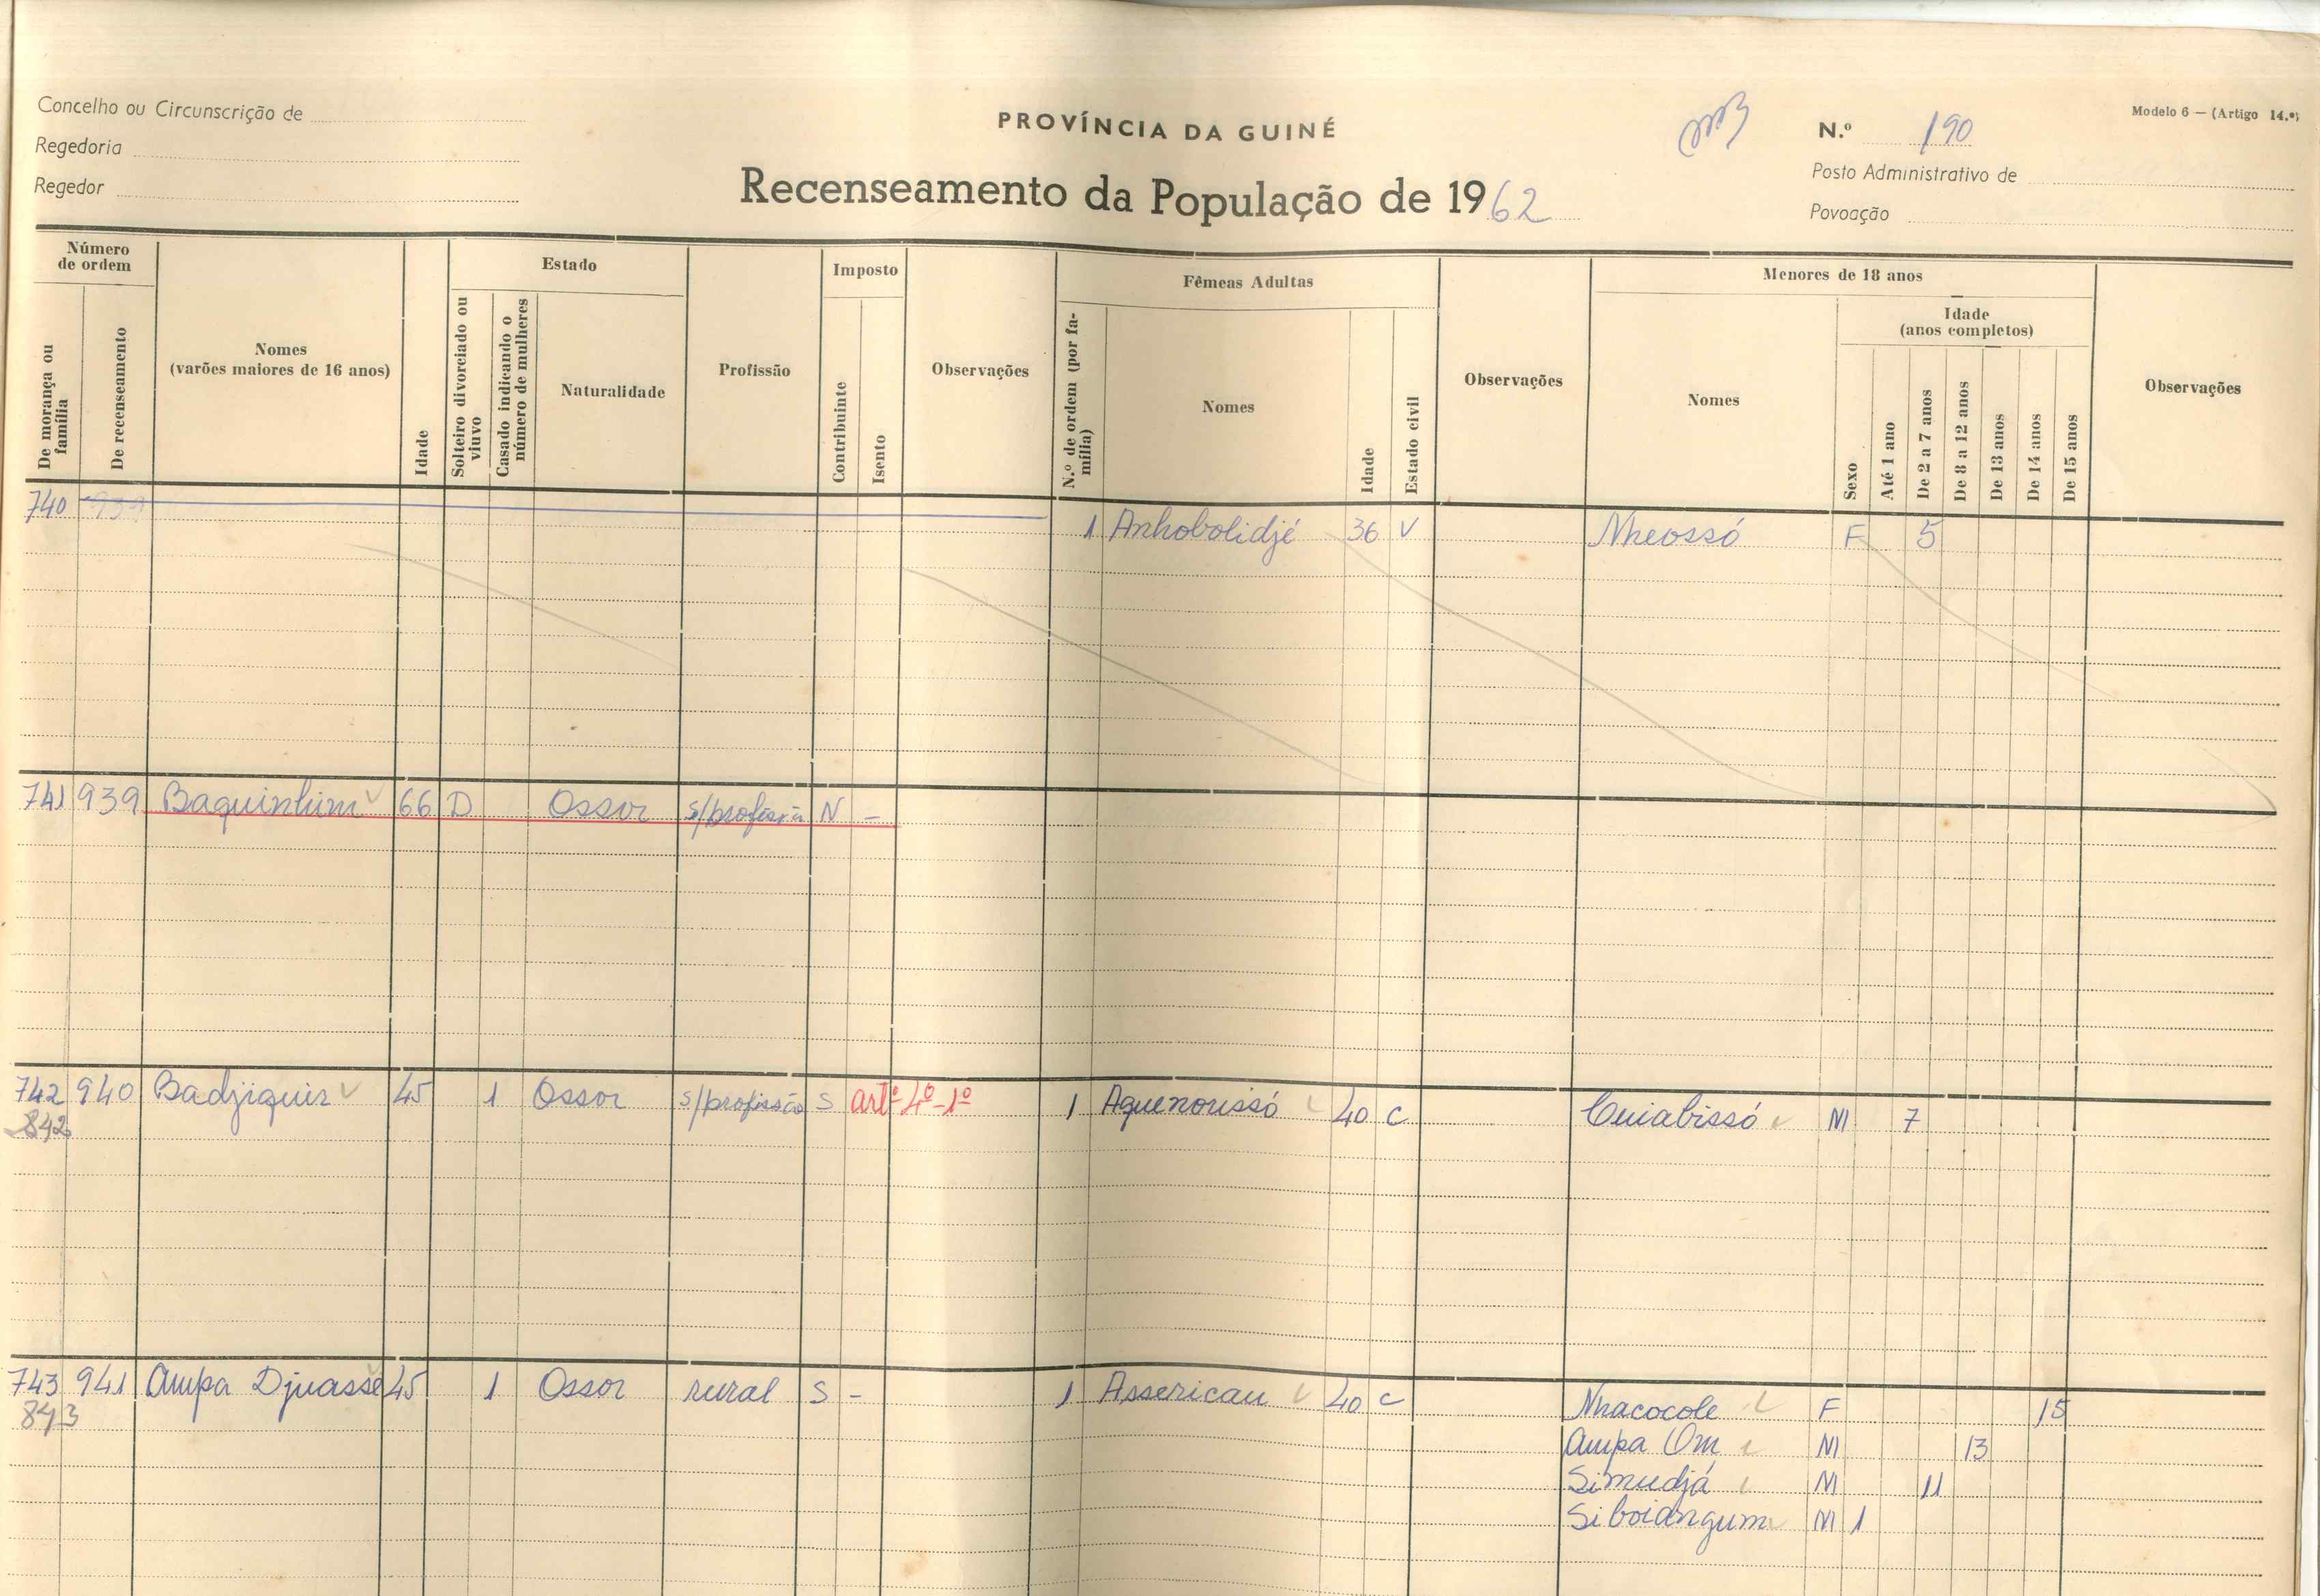 Concelho ou Circunscrição de
Regedoria
Regedor
PROVÍNCIA DA GUINÉ
Recenseamento da População de 1962
Modelo 6 — (Artigo 14.º)
N.º 190
Posto Administrativo de
Povoação
Número de ordem
De morança ou família
De recenseamento
Nomes
(varões maiores de 16 anos)
Idade
Estado
Solteiro divorciado ou viuvo
Casado indicando o número de mulheres
Naturalidade
Profissão
Imposto
Contribuinte
Isento
Observações
Fêmeas Adultas
N.º de ordem (por família)
Nomes
Idade
Estado civil
Observações
Menores de 18 anos
Nomes
Sexo
Idade
(anos completos)
Até 1 ano
De 2 a 7 anos
De 8 a 12 anos
De 13 anos
De 14 anos
De 15 anos
Observações
740 939 1 Anhobolidjé 36 V Nheossó F 5
741 939 Baquinhim 66 D Ossor s/profissão N -
742 940 Badjiquir 45 1 Ossor s/profissão S artº 4º-1º 1 Aquenorissó 40 C Cuiabissó M 7
842
743 941 Ampa Djuassé 45 1 Ossor rural S - 1 Assericau 40 C Nhacocole F 15
843
Ampa Om M 13
Simudjá M 11
Siboiangum M 1